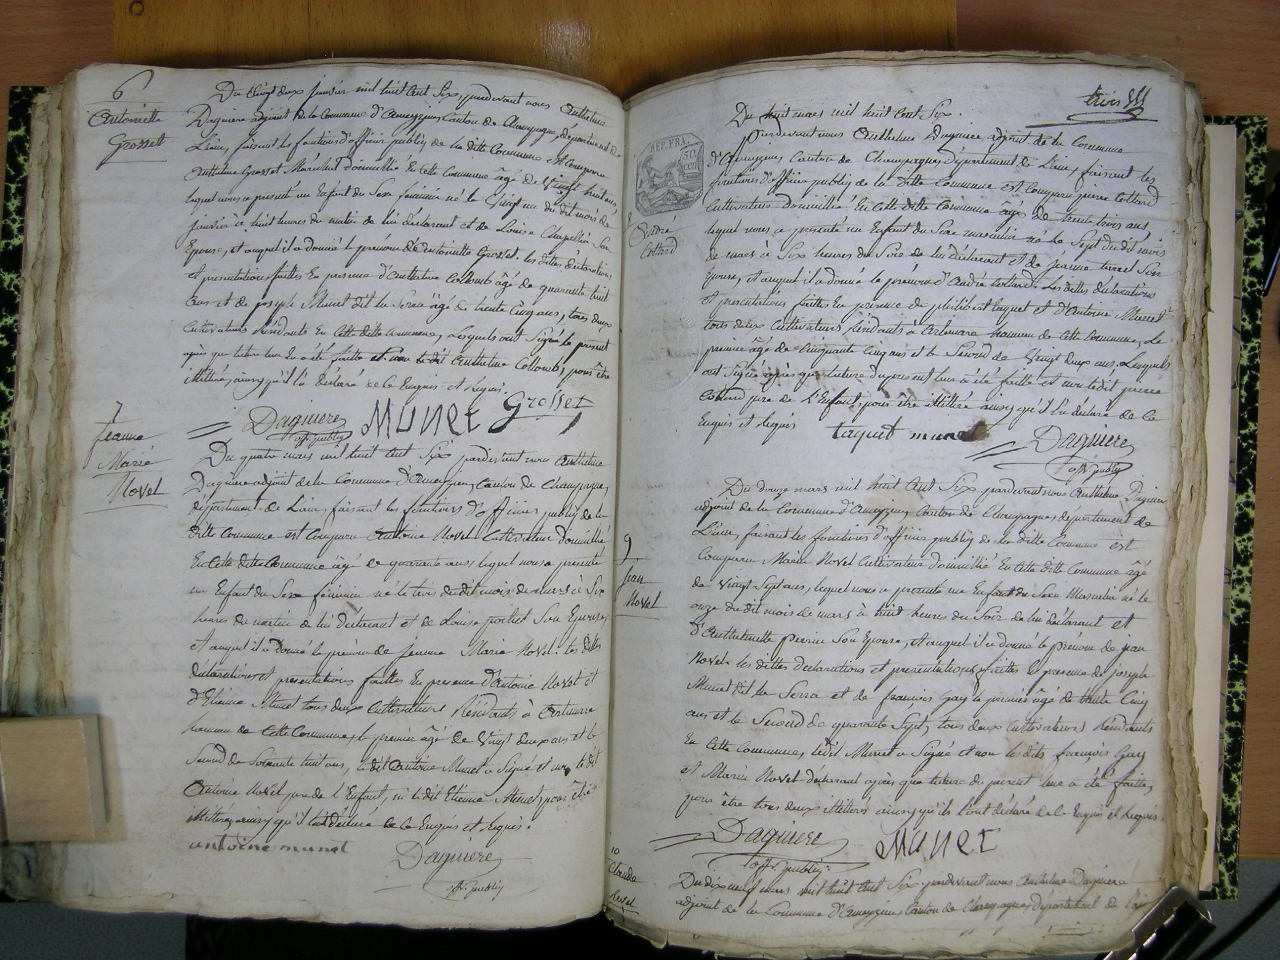 6
Antoinette
Grosset
Du vingt deux janvier mil huit cent Six pardevant nous Anthelme
Daguiere adjoint de la Commune d'Ameyzieu, Canton de Champagne, département de
L'ain, faisant les fonctions d'officier public de la ditte Commune est Comparu
Anthelme Grosset Maréchal domicillié En Cette ditte Commune âgé de Vingt huit ans,
lequel nous a présenté un Enfant du Sexe féminin né le Vingt un du dit mois de
janvier à huit heures du matin de lui déclarant et de Louise Chapellu Son
Epouse, et auquel il a donné le prénom d'Antoinette Grosset. les dittes déclarations
et présentation faittes En présence d'Anthelme Collomb âgé de quarante huit
ans et de joseph Munet dit la Serra âgé de trente Cinq ans, tous deux
Cultivateurs Résidents En Cette ditte Commune, Lesquels ont Signé le présent
après que lecture leur En a été faitte et non le dit Anthelme Collomb, pour être
illitéré, ainsy qu'il l'a déclaré de ce Enquis et requis.
Daguiere MUNET Grosset
off. public
7
Jeanne
Marie
Novel
Du quatre mars mil huit cent Six pardevant nous Anthelme
Daguiere adjoint de la Commune d'Ameyzieu, Canton de Champagne,
département de L'ain, faisant les fonctions d'officier public de la
ditte Commune est Comparu Antoine Novel Cultivateur domicillié
En Cette ditte Commune âgé de quarante ans lequel nous a présenté
un Enfant du Sexe féminin né le trois du dit mois de mars à Six
heures du matin de lui déclarant et de Louise Son Epouse,
et auquel il a donné le prénom de Jeanne Marie Novel. les dittes
déclarations et présentations faittes En présence d'Antoine Novet et
d'Etienne Munet tous deux Cultivateurs Résidents à Artemare
hameau de Cette Commune, le premier âgé de Vingt deux ans et le
Second de Soixante huit ans, le dit Antoine Munet a Signé et non le dit
Antoine Novel pere de l'Enfant, ni le dit Etienne Munet, pour être
illitérés, ainsy qu'il l'a déclaré de ce Enquis et requis.
antoine munet Daguiere
off. public
trois
REP. FRA.
Du huit mars mil huit cent Six.
Pardevant nous Anthelme Daguiere adjoint de la Commune
d'Ameyzieu, Canton de Champagne, département de L'ain, faisant les
fonctions d'officier public de la ditte Commune est Comparu pierre Cottard
Cultivateur domicillié En Cette ditte Commune âgé de trente trois ans,
lequel nous a présenté un Enfant du Sexe masculin né le Sept du dit mois
de mars à Six heures du Soir de lui déclarant et de jeanne Son
Epouse, et auquel il a donné le prénom d'André Cottard. Les dittes déclarations
et présentations faittes En présence de philibert taguet et d'Antoine Munet
tous deux Cultivateurs Résidents à Artemare hameau de Cette Commune, Le
premier âgé de Cinquante Cinq ans et le Second de Vingt deux ans, Lesquels
ont Signé après que lecture du présent leur a été faitte et non le dit pierre
Cottard pere de L'Enfant, pour être illitéré ainsy qu'il l'a déclaré de Ce
Enquis et Requis
taguet munet Daguiere
off. public
9
Jean
Novel
Du douze mars mil huit cent Six pardevant nous Anthelme Daguiere
adjoint de la Commune d'Ameyzieu, Canton de Champagne, département de
L'ain, faisant les fonctions d'officier public de la ditte Commune est
Comparu Marin Novel Cultivateur domicillié En Cette ditte Commune âgé
de Vingt Sept ans, lequel nous a présenté un Enfant du Sexe Masculin né le
onze du dit mois de mars à huit heures du Soir de lui déclarant et
d'Anthelmette Son Epouse, et auquel il a donné le prénom de jean
Novel. les dittes déclarations et présentations faittes En présence de joseph
Munet dit la Serra et de françois Gay le premier âgé de trente Cinq
ans et le Second de quarante Sept, tous deux Cultivateurs Résidents
En Cette Commune, ledit Munet a Signé et non les dits françois Gay
et Marin Novel déclarant après que lecture du présent leur a été faitte,
pour être tous deux illitérés ainsy qu'ils l'ont déclaré de Ce Enquis et Requis.
Daguiere MUNET
off. public
10
Claude
Du dix neuf mars mil huit cent Six pardevant nous Anthelme Daguiere
adjoint de la Commune d'Ameyzieu, Canton de Champagne, département de L'ain